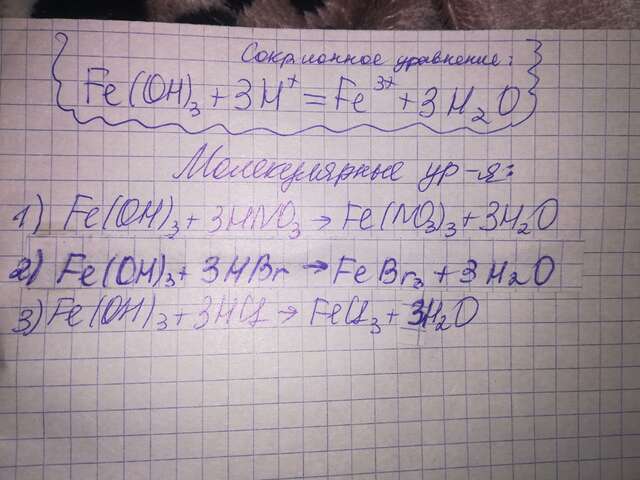 Сокр. ионное уравнение:
Fe(OH)₃ + 3H⁺ = Fe³⁺ + 3H₂O
Молекулярные ур-я:
1) Fe(OH)₃ + 3HNO₃ → Fe(NO₃)₃ + 3H₂O
2) Fe(OH)₃ + 3HBr → FeBr₃ + 3H₂O
3) Fe(OH)₃ + 3HCl → FeCl₃ + 3H₂O